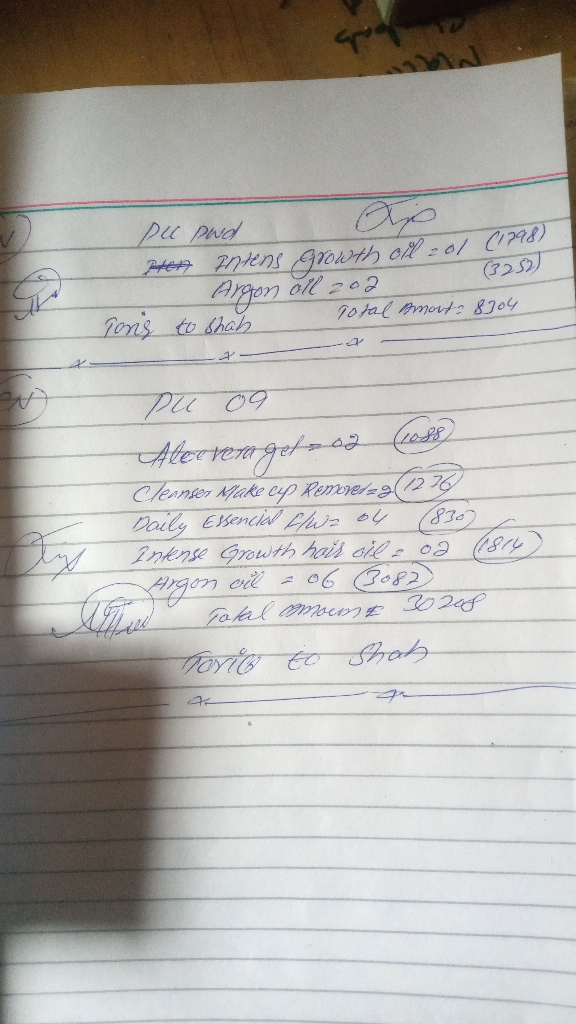 PU pwd
Intens Growth oil = 01 (1798)
Argon oil = 02 (3252)
Total Amont = 8304
to Shah
PU 09
Aloe vera gel = 02 (1088)
Cleanser Make up Remover = 2 (1276)
Daily Essencial f/w = 04 (830)
Intense Growth hair oil = 02 (1814)
Argon oil = 06 (3082)
Total amount 30208
to Shah